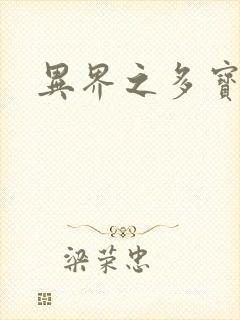 異界之多寶
梁荣忠